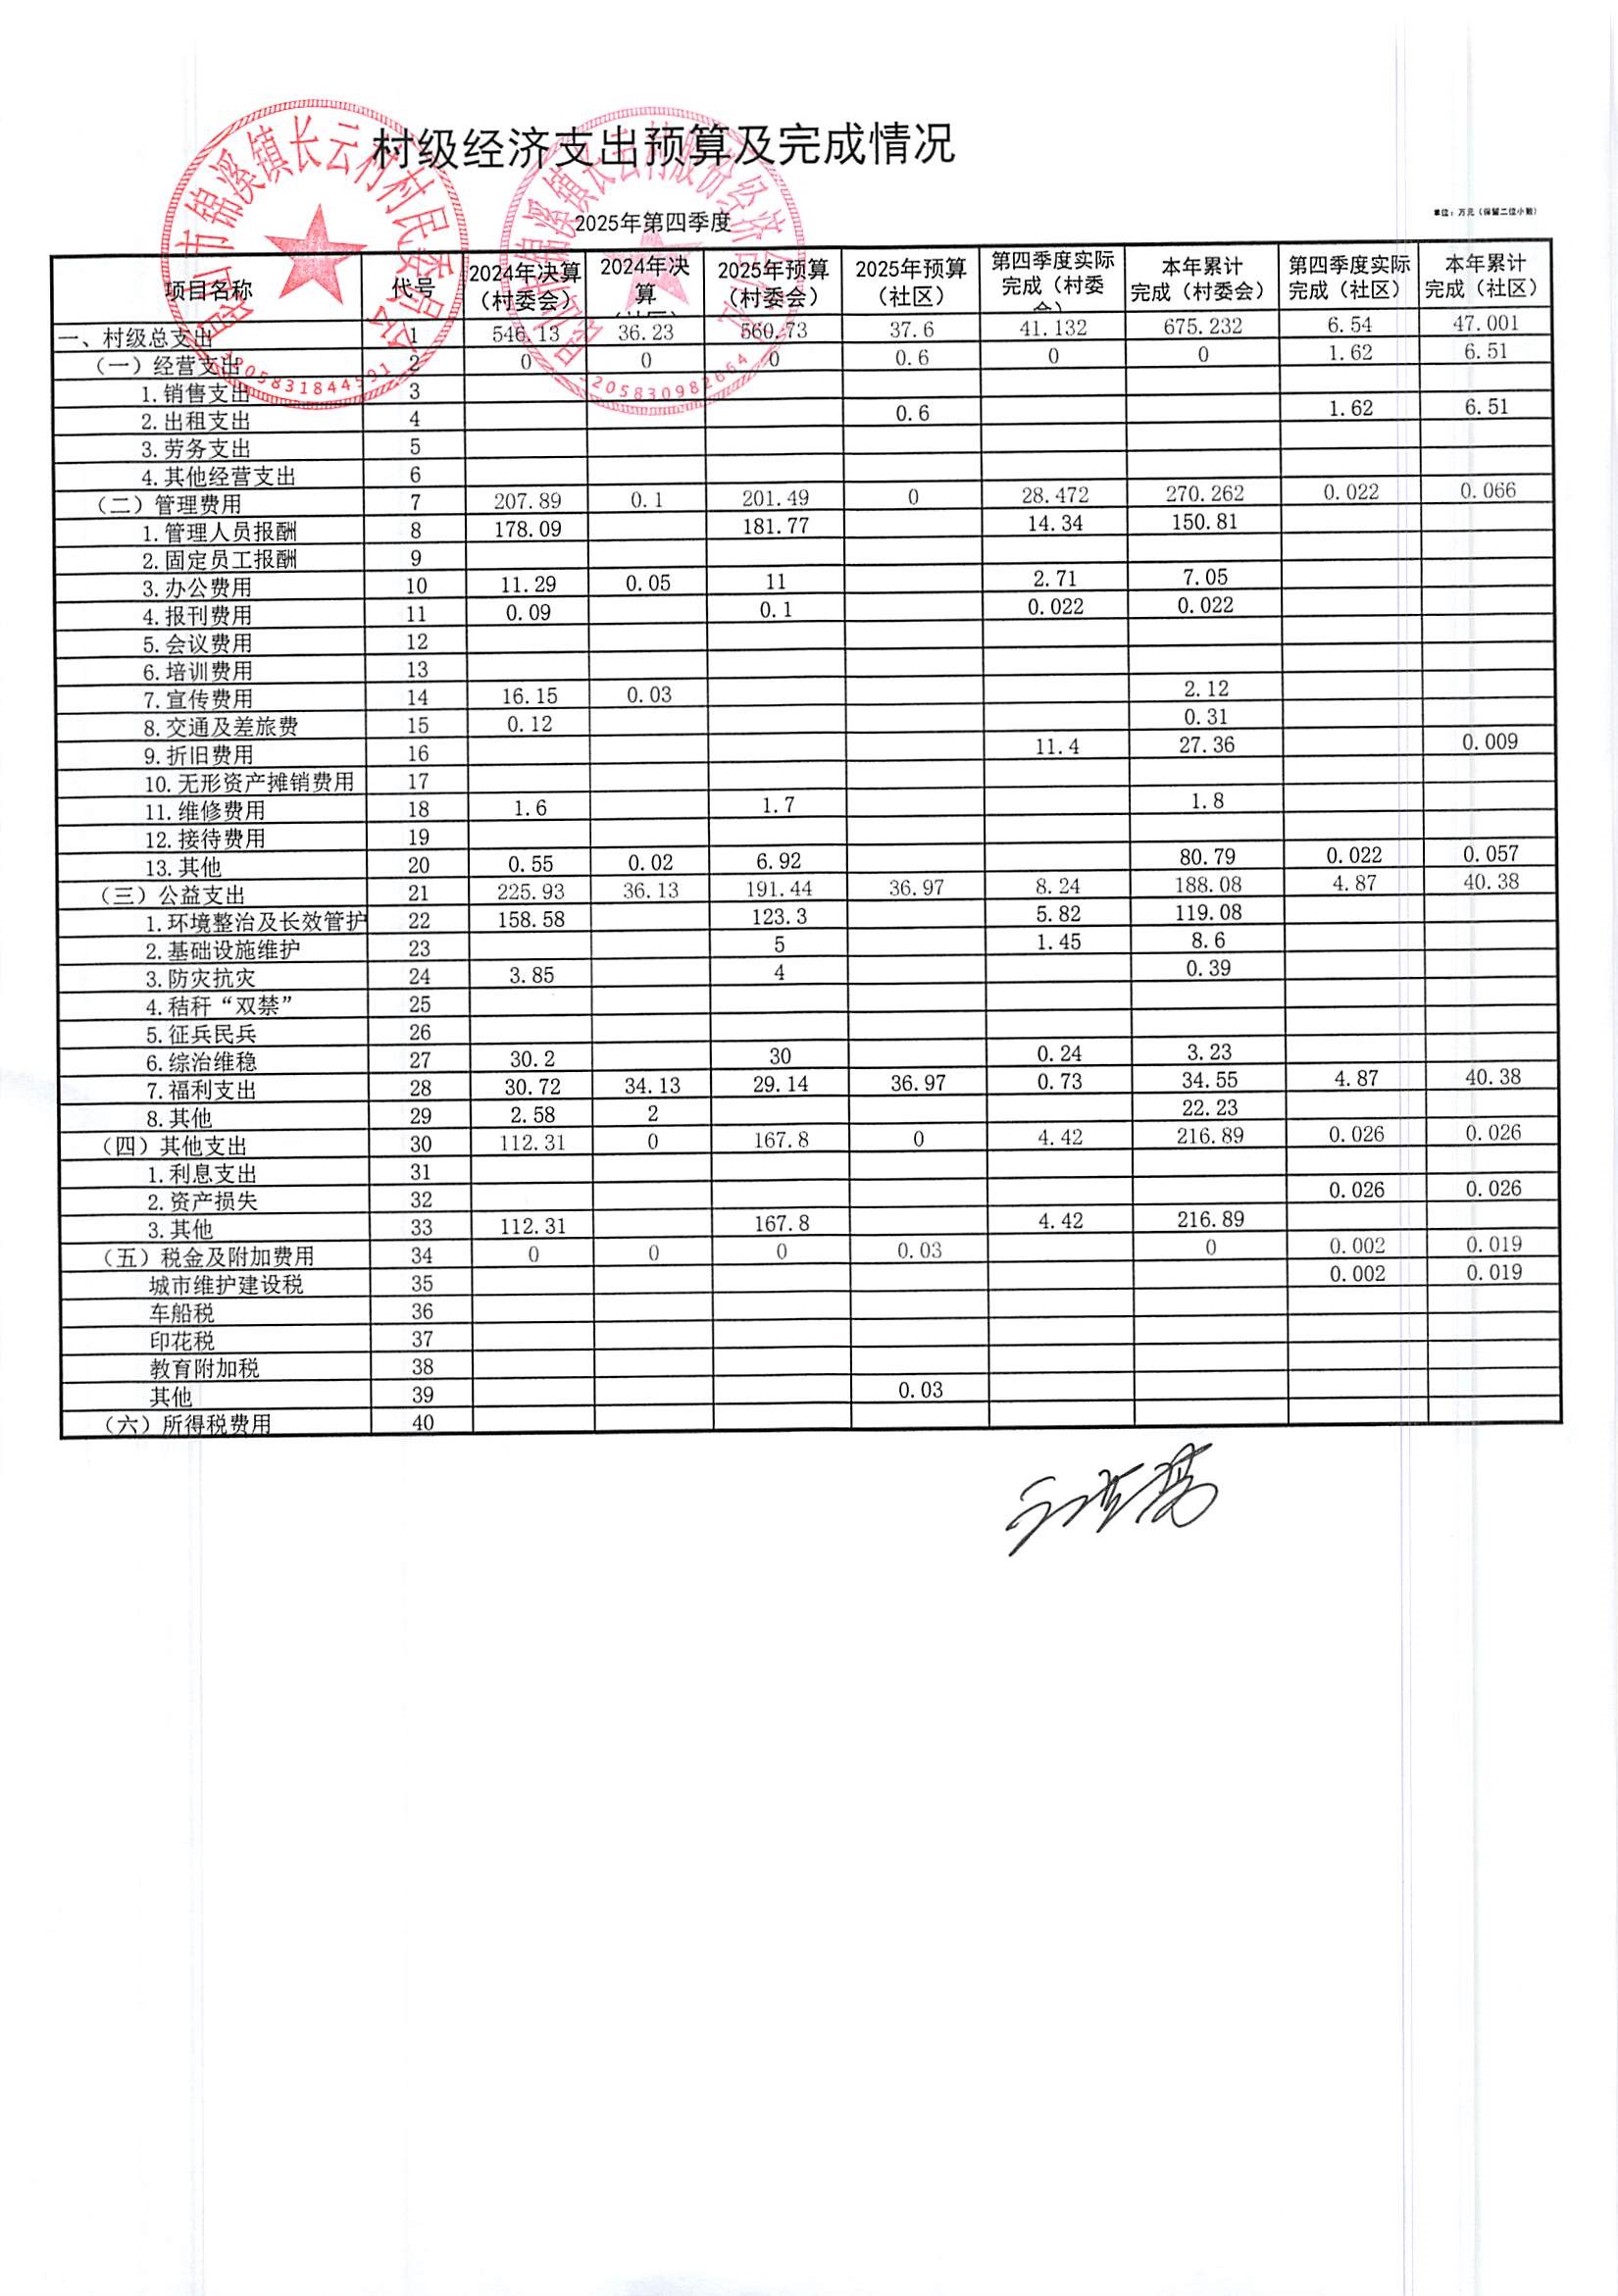 村级经济支出预算及完成情况
2025年第四季度
单位：万元（保留二位小数）
项目名称 代号 2024年决算（村委会） 2024年决算（社区） 2025年预算（村委会） 2025年预算（社区） 第四季度实际完成（村委会） 本年累计完成（村委会） 第四季度实际完成（社区） 本年累计完成（社区）
一、村级总支出 1 546.13 36.23 560.73 37.6 41.132 675.232 6.54 47.001
（一）经营支出 2 0 0 0 0.6 0 0 1.62 6.51
1.销售支出 3
2.出租支出 4 0.6 1.62 6.51
3.劳务支出 5
4.其他经营支出 6
（二）管理费用 7 207.89 0.1 201.49 0 28.472 270.262 0.022 0.066
1.管理人员报酬 8 178.09 181.77 14.34 150.81
2.固定员工报酬 9
3.办公费用 10 11.29 0.05 11 2.71 7.05
4.报刊费用 11 0.09 0.1 0.022 0.022
5.会议费用 12
6.培训费用 13
7.宣传费用 14 16.15 0.03 2.12
8.交通及差旅费 15 0.12 0.31
9.折旧费用 16 11.4 27.36 0.009
10.无形资产摊销费用 17
11.维修费用 18 1.6 1.7 1.8
12.接待费用 19
13.其他 20 0.55 0.02 6.92 80.79 0.022 0.057
（三）公益支出 21 225.93 36.13 191.44 36.97 8.24 188.08 4.87 40.38
1.环境整治及长效管护 22 158.58 123.3 5.82 119.08
2.基础设施维护 23 5 1.45 8.6
3.防灾抗灾 24 3.85 4 0.39
4.秸秆“双禁” 25
5.征兵民兵 26
6.综治维稳 27 30.2 30 0.24 3.23
7.福利支出 28 30.72 34.13 29.14 36.97 0.73 34.55 4.87 40.38
8.其他 29 2.58 2 22.23
（四）其他支出 30 112.31 0 167.8 0 4.42 216.89 0.026 0.026
1.利息支出 31
2.资产损失 32 0.026 0.026
3.其他 33 112.31 167.8 4.42 216.89
（五）税金及附加费用 34 0 0 0 0.03 0 0.002 0.019
城市维护建设税 35 0.002 0.019
车船税 36
印花税 37
教育附加税 38
其他 39 0.03
（六）所得税费用 40
昆山市锦溪镇长云村村民委员会
3205831844591
昆山市锦溪镇长云村股份经济合作社
3205830982664